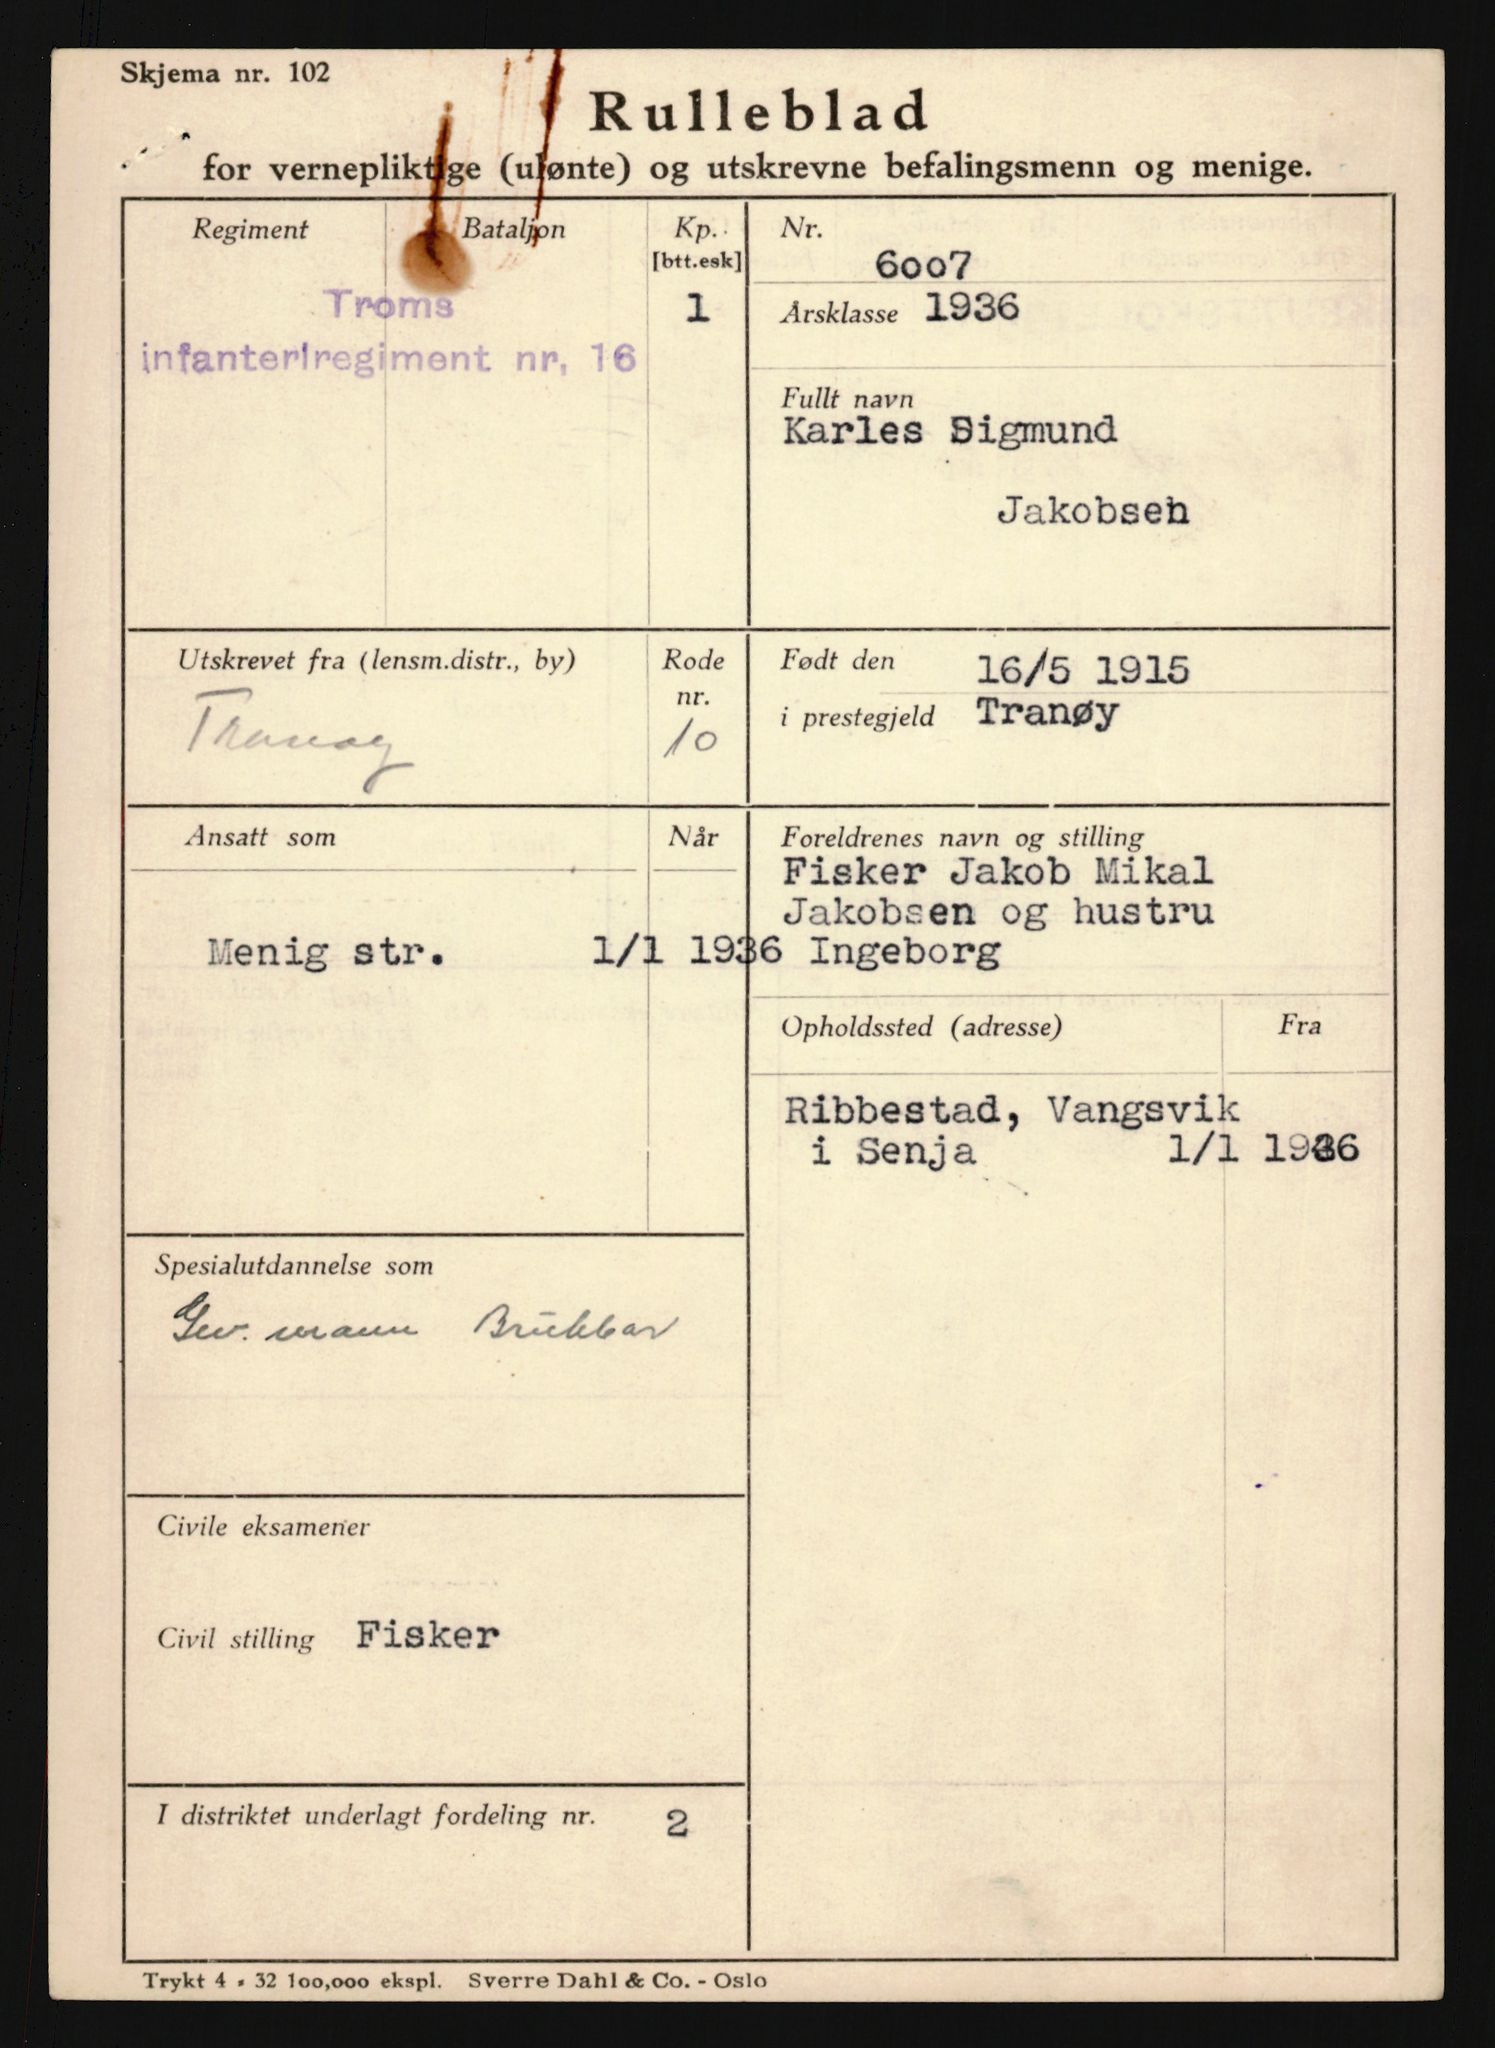 Skjema nr. 102
Rulleblad
for vernepliktige (ulønte) og utskrevne befalingsmenn og menige.
Regiment
Bataljon
Kp.
[btt.esk]
Troms
infanteriregiment nr. 16
1
Nr.
6007
Årsklasse 1936
Fullt navn
Karles Sigmund
Jakobsen
Utskrevet fra (lensm.distr., by)
Tranøy
Rode
nr.
10
Født den 16/5 1915
i prestegjeld Tranøy
Ansatt som
Når
Menig str. 1/1 1936
Foreldrenes navn og stilling
Fisker Jakob Mikal
Jakobsen og hustru
Ingeborg
Opholdssted (adresse)
Fra
Ribbestad, Vangsvik
i Senja 1/1 1936
Spesialutdannelse som
Gev. mann Brukbar
Civile eksamener
Civil stilling Fisker
I distriktet underlagt fordeling nr. 2
Trykt 4 - 32 100,000 ekspl. Sverre Dahl & Co. - Oslo